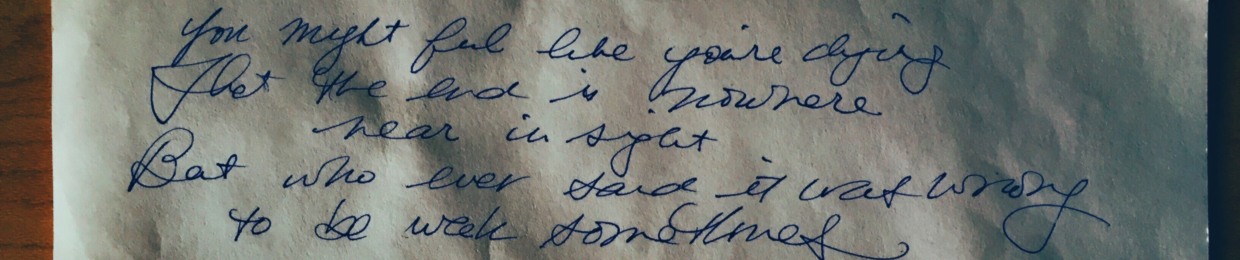 You might feel like you're dying
That the end is nowhere
near in sight
But who ever said it was wrong
to be weak sometimes